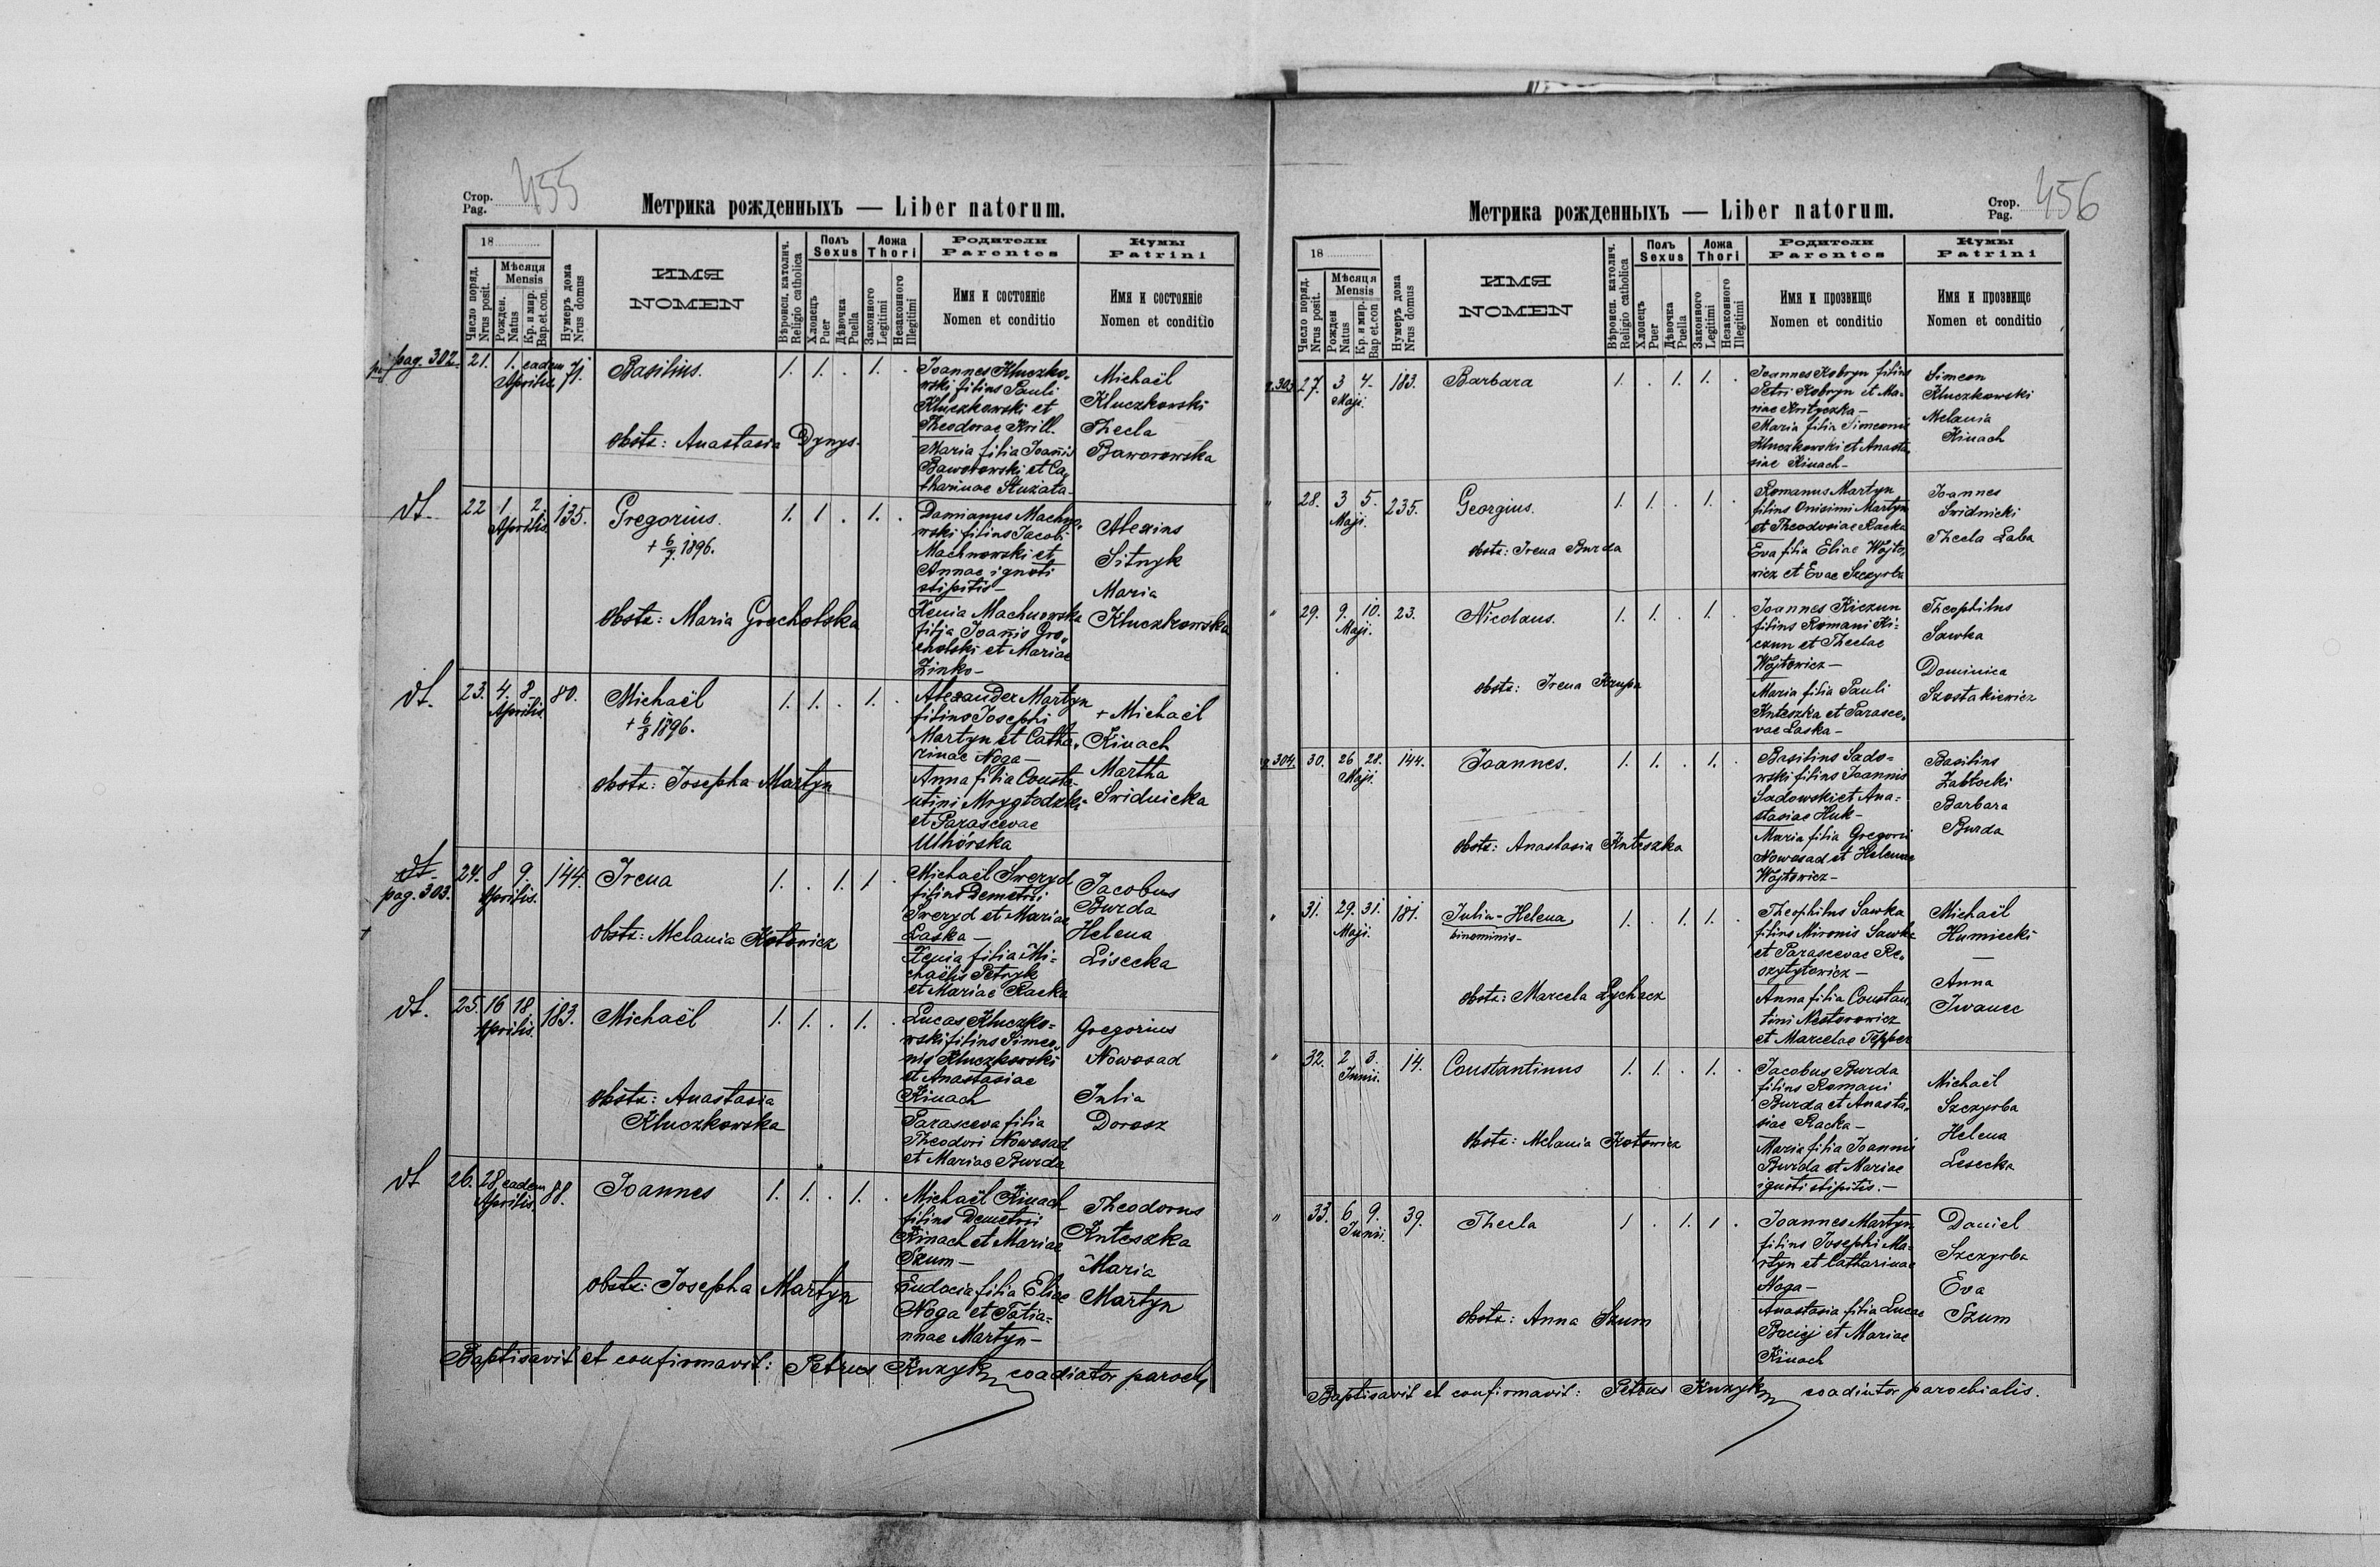 Стор.
Pag. 455
Метрика рожденныхъ — Liber natorum.
18
Число поряд.
Nrus posit.
Мѣсяця
Mensis
Рожден.
Natus
Кр. и мир.
Bap.et.con.
Нумеръ дома
Nrus domus
ИМЯ
NOMEN
Вѣроисп. католич.
Religio catholica
Полъ
Sexus
Хлопецъ
Puer
Дѣвочка
Puella
Ложа
Thori
Законного
Legitimi
Незаконного
Illegitimi
Родители
Parentes
Имя и состояніе
Nomen et conditio
Кумы
Patrini
Имя и состояніе
Nomen et conditio
pag. 302.
21. 1. eadem 71. Basilius. 1. 1. . 1. .
Aprilis
obstx: Anastasia Dynys.
Joannes Kluczko-
wski filius Pauli
Kluczkowski et
Theodorae Krill.
Maria filia Joanis
Baworowski et Ca-
tharinae Stuxata-
Michaël
Kluczkowski
Thecla
Baworowska
dt.
22 1 2 135. Gregorius. 1. 1 . 1. .
Aprilis.
+ 6/7 1896.
obstx: Maria Grocholska
Damianus Machno-
wski filius Jacobi
Machnowski et
Annae ignoti
stipitis-
Xenia Machnowska
filia Joanis Gro-
cholski et Mariae
Zinko-
Alexius
Sitnyk
Maria
Kluczkowska
dt.
23. 4. 8. 80. Michaël 1. 1. . 1. .
Aprilis
+ 6/8 1896.
obstx: Josepha Martyn
Alexander Martyn
filius Josephi
Martyn et Catha-
rinae Noga-
Anna filia Consta-
ntini Mrygłodzki
et Parascevae
Uthórska
+ Michaël
Kinach
Martha
Swidnicka
dt.
pag. 303.
24. 8 9. 144. Irena 1. . 1. 1 .
Aprilis.
obstx: Melania Kotowicz
Michaël Sweryd
filius Demetrii
Sweryd et Mariae
Laska-
Xenia filia Mi-
chaëlis Petryk
et Mariae Racka
Jacobus
Burda
Helena
Lisecka
dt.
25. 16 18. 183. Michaël 1. 1. . 1. .
Aprilis.
obstx: Anastasia
Kluczkowska
Lucas Kluczko-
wski filius Simeo-
nis Kluczkowski
et Anastasiae
Kinach
Parasceva filia
Theodori Nowosad
et Mariae Burda
Gregorius
Nowosad
Julia
Dorosz
dt
26. 28 eadem 88. Joannes 1. 1. . 1. .
Aprilis.
obstx: Josepha Martyn
Michaël Kinach
filius Demetrii
Kinach et Mariae
Szum-
Eudocia filia Eliae
Noga et Tatia-
nnae Martyn-
Theodorus
Knteszka
Maria
Martyn
Baptisavit et confirmavit: Petrus Kuzyk coadiutor paroch.
Метрика рожденныхъ — Liber natorum.
Стор.
Pag. 456
18
Число поряд.
Nrus posit.
Мѣсяця
Mensis
Рожден
Natus
Кр. и мир.
Bap et.con
Нумеръ дома
Nrus domus
ИМЯ
NOMEN
Вѣроисп. католич.
Religio catholica
Полъ
Sexus
Хлопецъ
Puer
Дѣвочка
Puella
Ложа
Thori
Законного
Legitimi
Незаконного
Illegitimi
Родители
Parentes
Имя и прозвище
Nomen et conditio
Кумы
Patrini
Имя и прозвище
Nomen et conditio
303.
27. 3 4. 183. Barbara 1. . 1. 1. .
Maji.
Joannes Kobryn filius
Petri Kobryn et Ma-
riae Krityczka-
Maria filia Simeonis
Kluczkowski et Anasta-
siae Kinach-
Simeon
Kluczkowski
Melania
Kinach
"
28. 3 5. 235. Georgius. 1. 1. . 1. .
Maji.
obstx: Irena Burda
Romanus Martyn
filius Onisimi Martyn
et Theodosiae Racka
Eva filia Eliae Wojto-
wicz et Evae Szczyrba
Joannes
Swidnicki
Thecla Łaba
"
29. 9. 10. 23. Nicolaus. 1. 1. . 1. .
Maji.
obstx: Irena Krupa
Joannes Kiczun
filius Romani Ki-
czun et Theclae
Wojtowicz-
Maria filia Pauli
Knteszka et Parasce-
vae Laska-
Theophilus
Sawka
Dominica
Szostakiewicz
304.
30. 26 28. 144. Joannes. 1. 1. . 1. .
Maji.
obstx: Anastasia Knteszka
Basilius Sado-
wski filius Joannis
Sadowski et Ana-
stasiae Huk-
Maria filia Gregorii
Nowosad et Helenae
Wojtowicz-
Basilius
Zabłocki
Barbara
Burda
"
31. 29. 31. 181. Julia-Helena 1. . 1. 1. .
Maji. binominis-
obstx: Marcela Lychacz
Theophilus Sawka
filius Mironis Sawka
et Parascevae Re-
szytytowicz-
Anna filia Constan-
tini Nestorowicz
et Marcelae Tepper
Michaël
Humiecki
—
Anna
Iwanec
"
32. 2 3. 14. Constantinus 1. 1. . 1. .
Junii.
obstx: Melania Kotowicz
Jacobus Burda
filius Romani
Burda et Anasta-
siae Racka-
Maria filia Joannis
Burda et Mariae
ignoti stipitis.-
Michaël
Szczyrba
Helena
Lesecka
"
33. 6 9. 39. Thecla 1 . 1. 1 .
Junii.
obstx: Anna Szum
Joannes Martyn
filius Josephi Ma-
rtyn et Catharinae
Noga-
Anastasia filia Lucae
Bociej et Mariae
Kinach
Daniel
Szczyrba
Eva
Szum
Baptisavit et confirmavit: Petrus Kuzyk coadiutor parochialis.